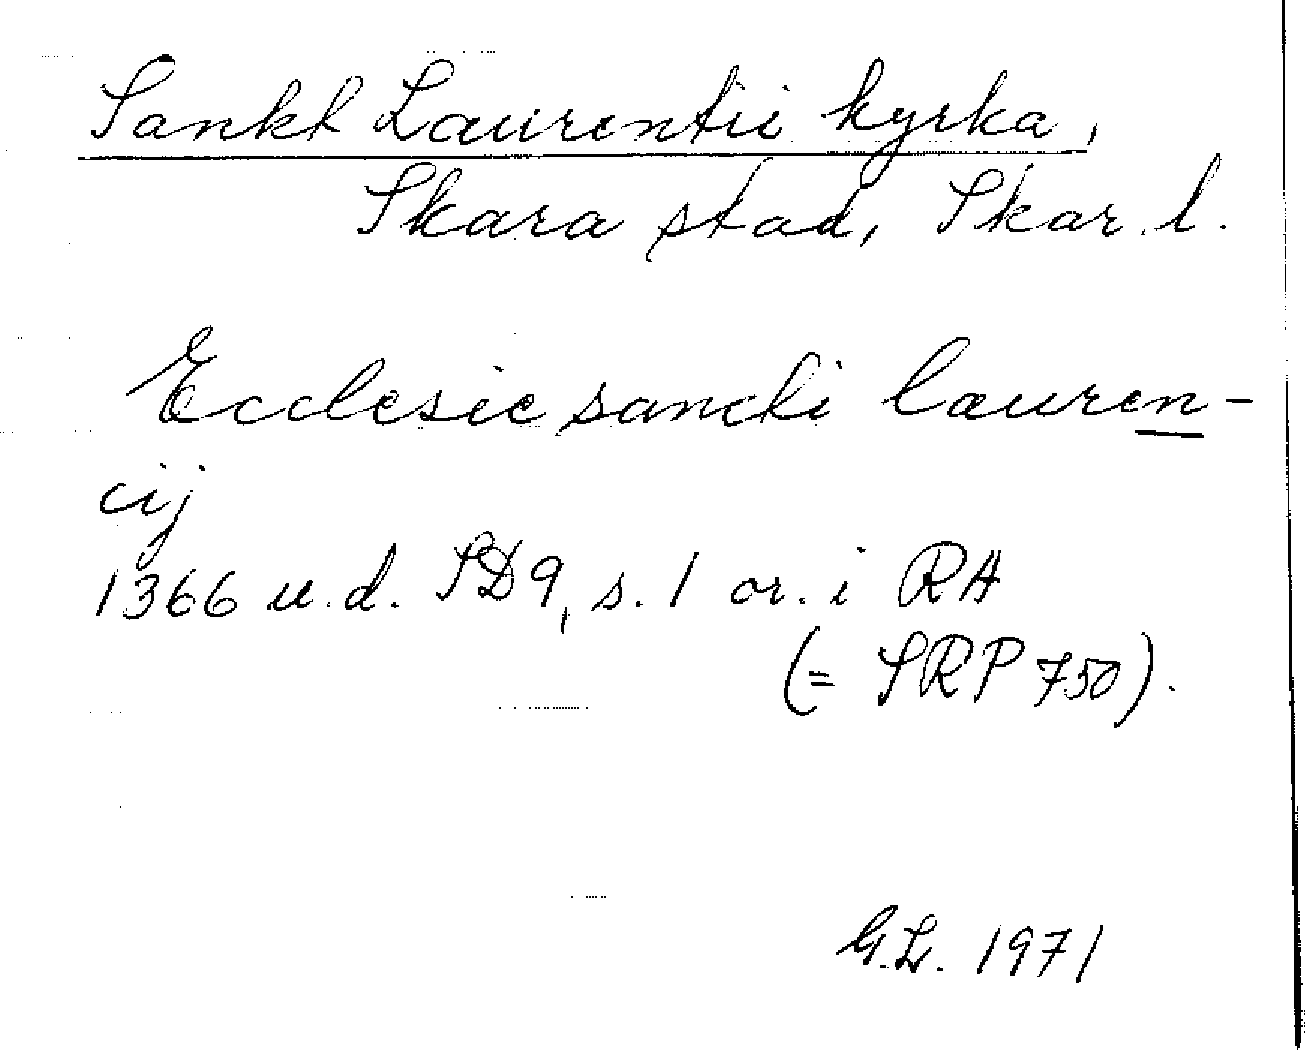 Sankt Laurentii kyrka,
Skara stad, Skar. l.
Ecclesie sancti lauren-
cij
1366 u.d. SD 9, s. 1 or. i RA
(= SRP 750).
G.L. 1971